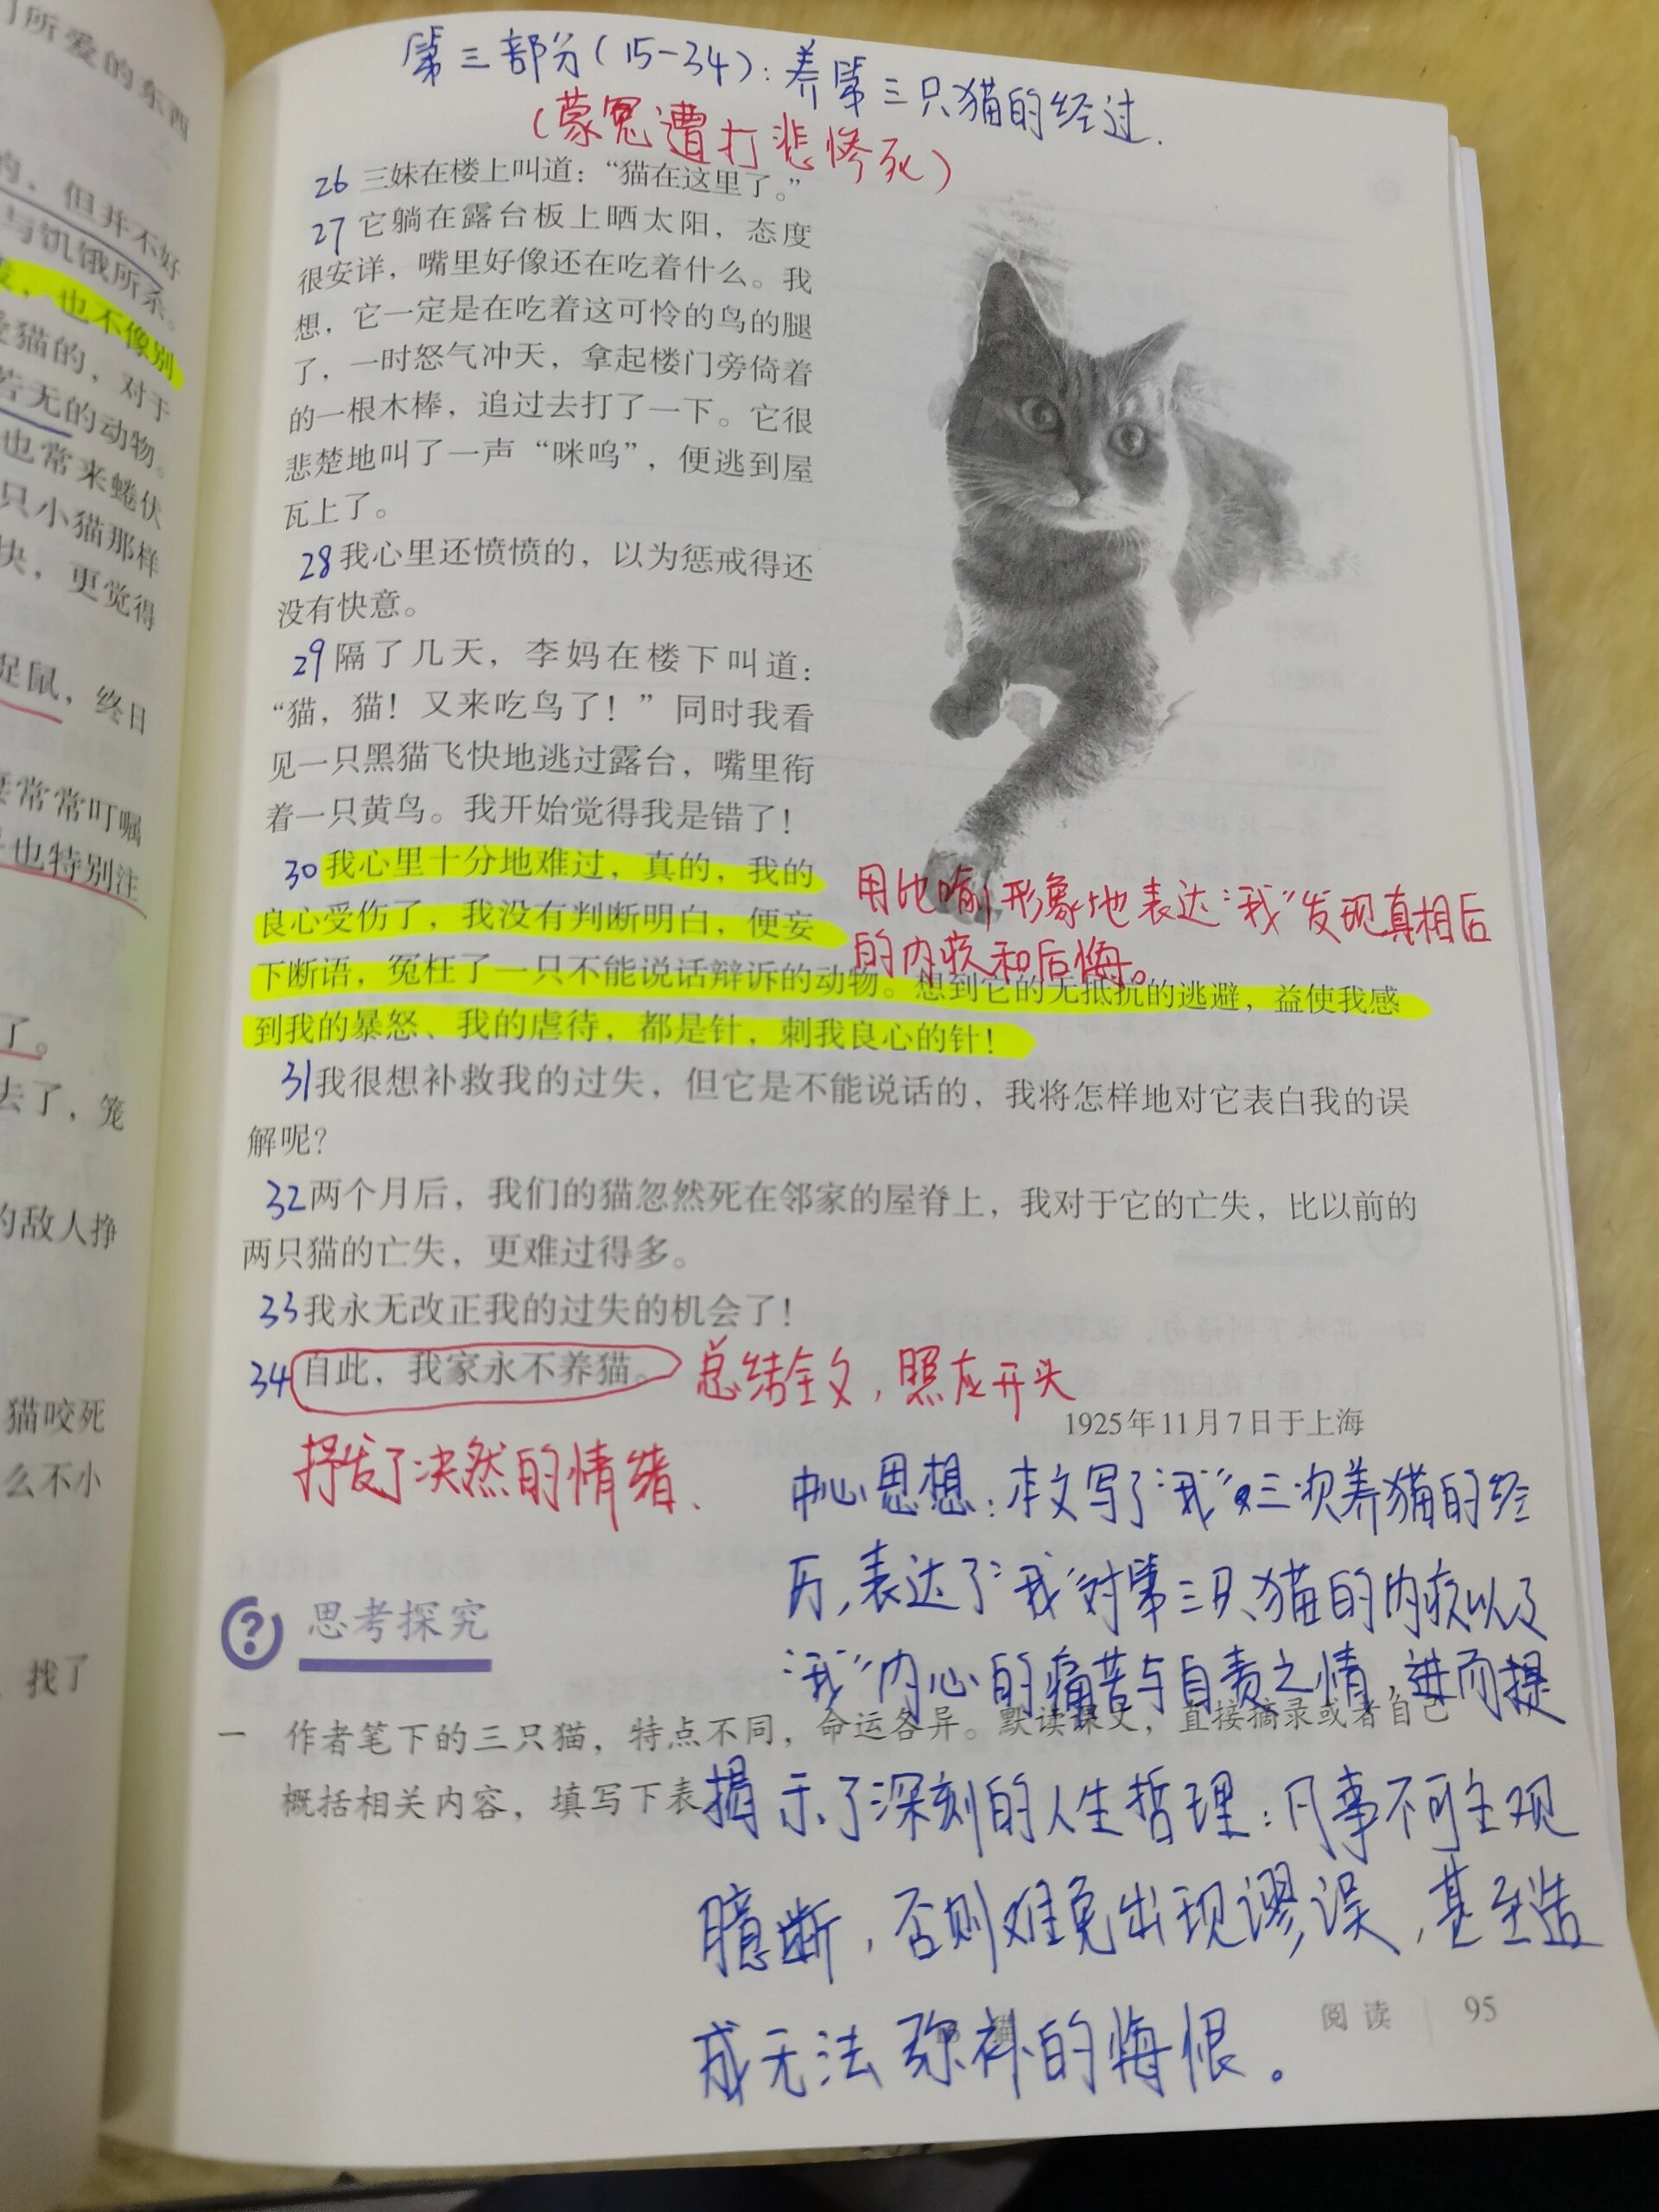 们所爱的东西
的，但并不好
与饥饿所杀。
也不像别
爱猫的，对于
若无的动物。
也常来蜷伏
只小猫那样
快，更觉得
捉鼠，终日
常常叮嘱
也特别注
了。
去了，笼
的敌人挣
猫咬死
么不小
找了
第三部分（15-34）：养第三只猫的经过.
（蒙冤遭打悲惨死）
26 三妹在楼上叫道：“猫在这里了。”
27 它躺在露台板上晒太阳，态度
很安详，嘴里好像还在吃着什么。我
想，它一定是在吃着这可怜的鸟的腿
了，一时怒气冲天，拿起楼门旁倚着
的一根木棒，追过去打了一下。它很
悲楚地叫了一声“咪呜”，便逃到屋
瓦上了。
28 我心里还愤愤的，以为惩戒得还
没有快意。
29 隔了几天，李妈在楼下叫道：
“猫，猫！又来吃鸟了！”同时我看
见一只黑猫飞快地逃过露台，嘴里衔
着一只黄鸟。我开始觉得我是错了！
30 我心里十分地难过，真的，我的
良心受伤了，我没有判断明白，便妄
下断语，冤枉了一只不能说话辩诉的动物。想到它的无抵抗的逃避，益使我感
到我的暴怒、我的虐待，都是针，刺我良心的针！
用比喻形象地表达“我”发现真相后
的内疚和后悔。
31 我很想补救我的过失，但它是不能说话的，我将怎样地对它表白我的误
解呢？
32 两个月后，我们的猫忽然死在邻家的屋脊上，我对于它的亡失，比以前的
两只猫的亡失，更难过得多。
33 我永无改正我的过失的机会了！
34 自此，我家永不养猫。 总结全文，照应开头
1925年11月7日于上海
抒发了决然的情绪、
中心思想：本文写了“我”三次养猫的经
历，表达了“我”对第三只猫的内疚以及
“我”内心的痛苦与自责之情，进而提
揭示了深刻的人生哲理：凡事不可主观
臆断，否则难免出现谬误，甚至造
成无法弥补的悔恨。
思考探究
一 作者笔下的三只猫，特点不同，命运各异。默读课文，直接摘录或者自己
概括相关内容，填写下表
阅读 95